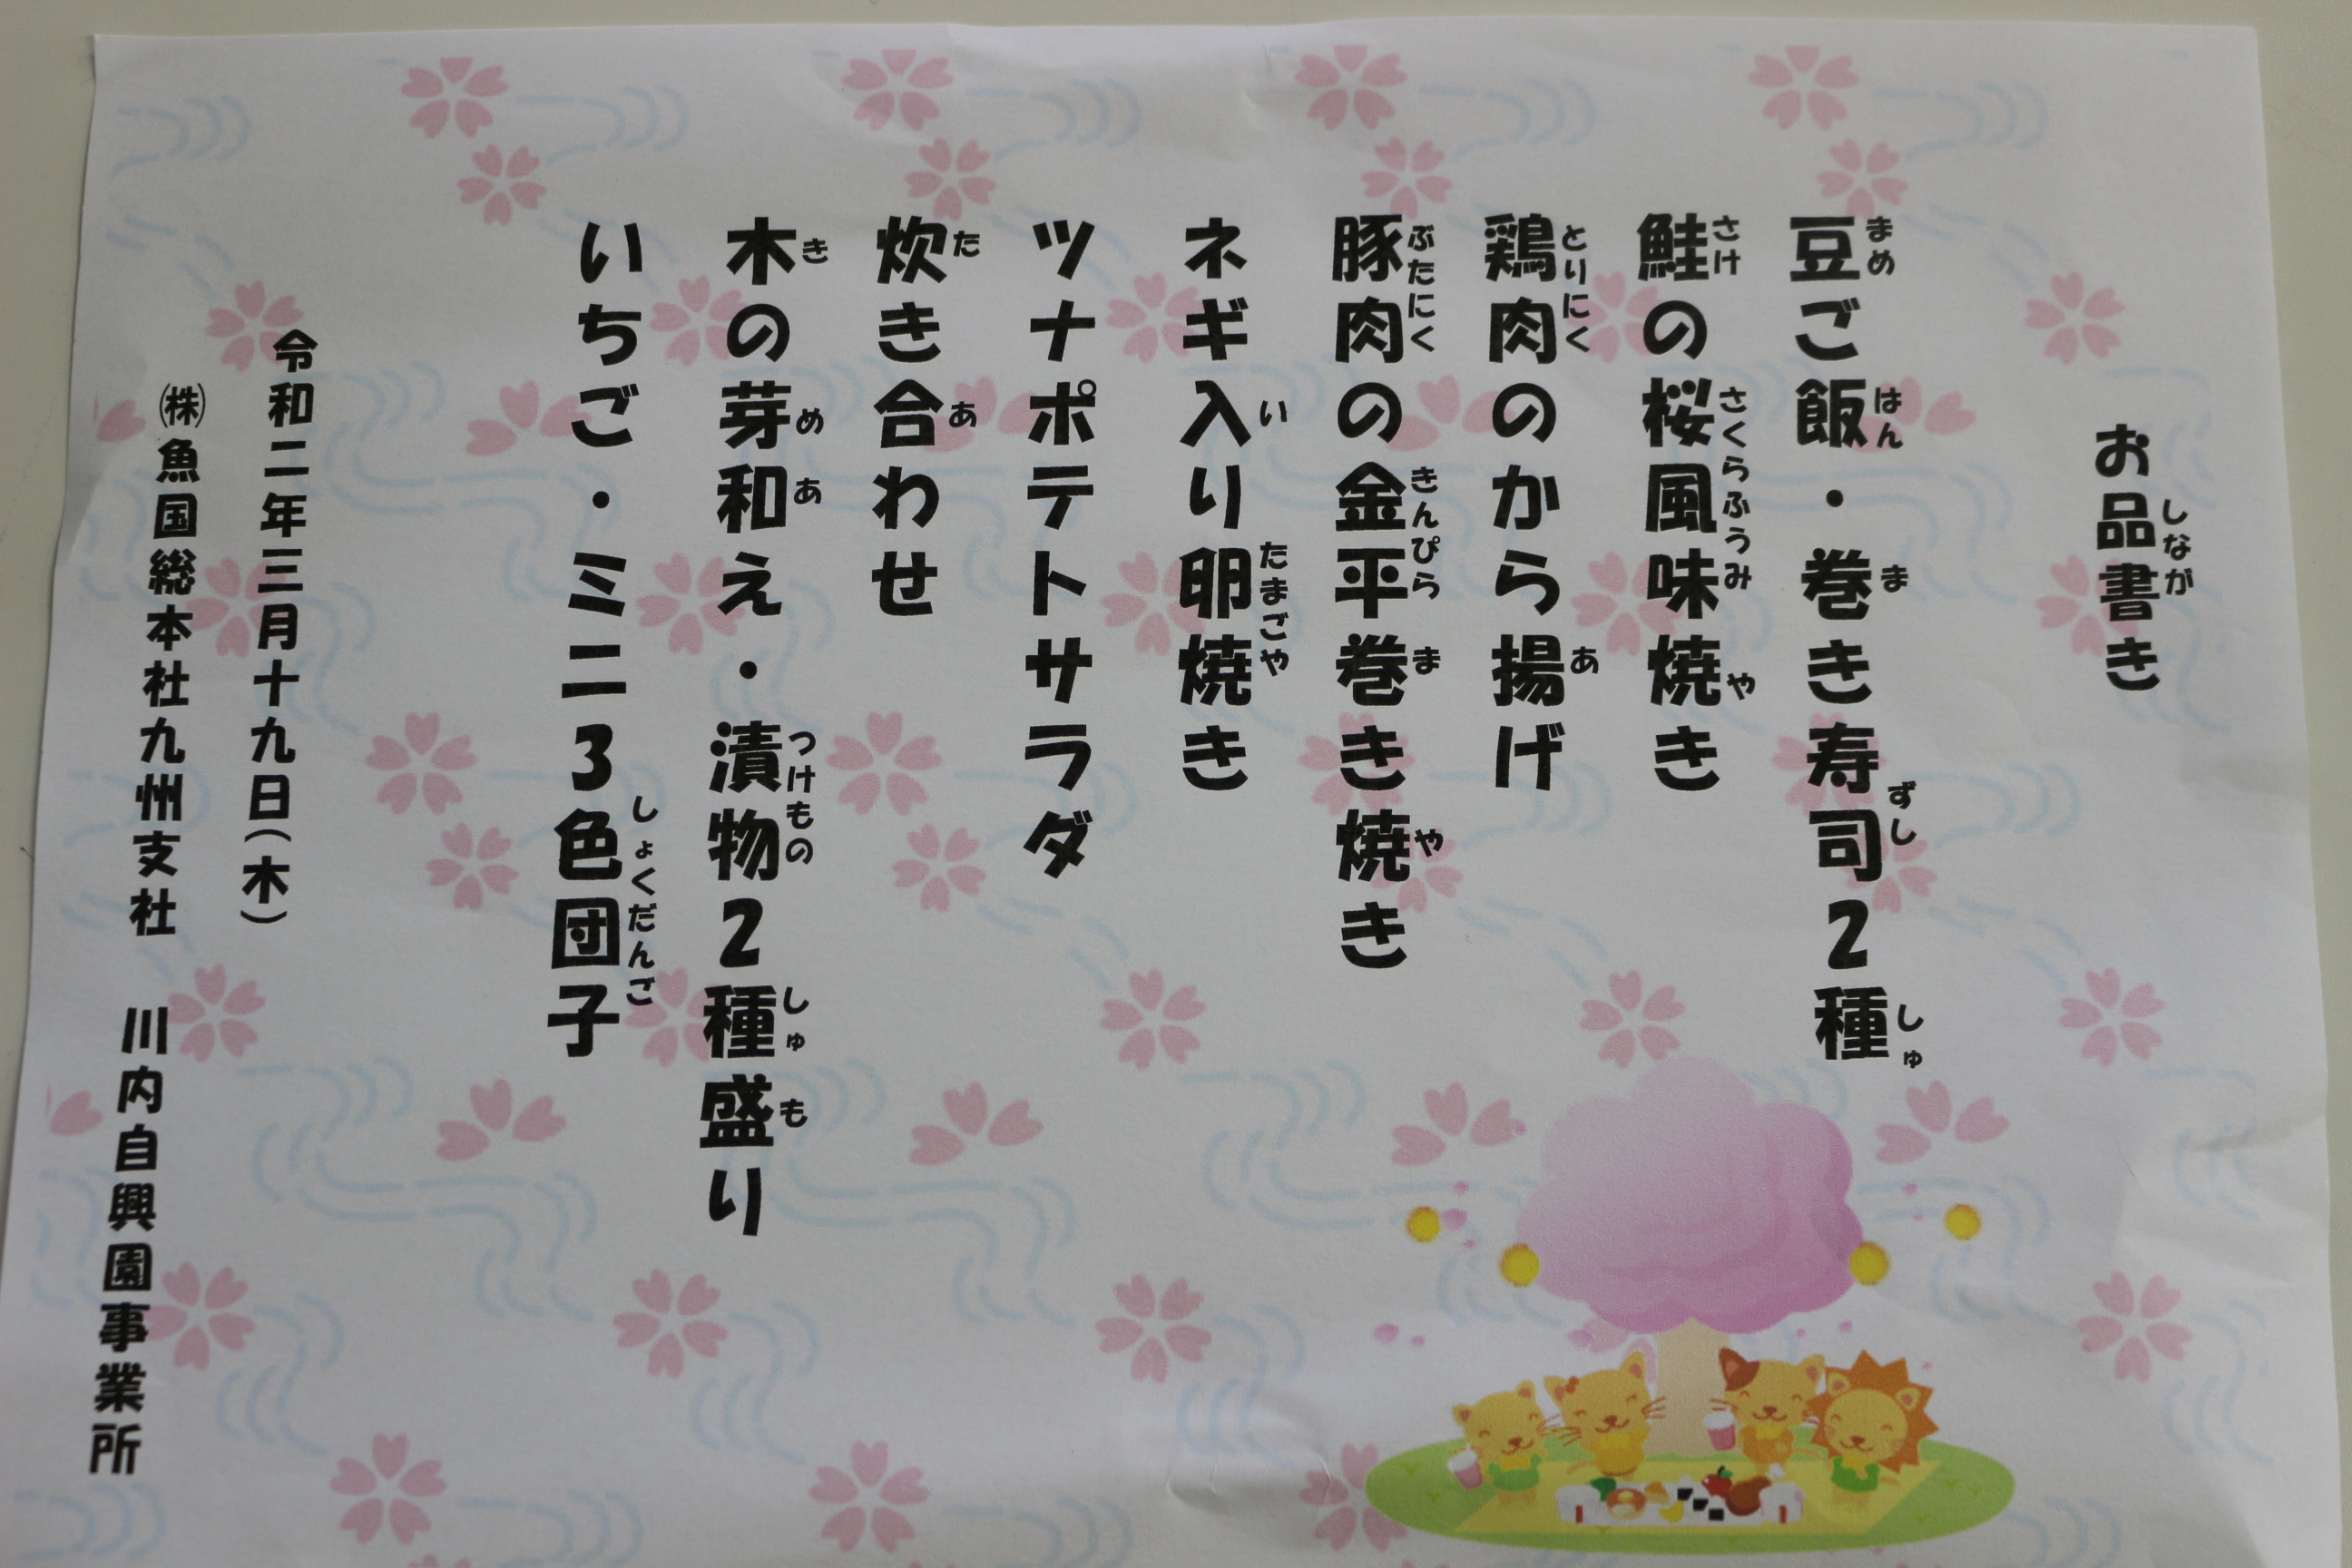 お品書き
豆ご飯・巻き寿司2種
鮭の桜風味焼き
鶏肉のから揚げ
豚肉の金平巻き焼き
ネギ入り卵焼き
ツナポテトサラダ
炊き合わせ
木の芽和え・漬物2種盛り
いちご・ミニ3色団子
令和二年三月十九日(木)
㈱魚国総本社九州支社 川内自興園事業所